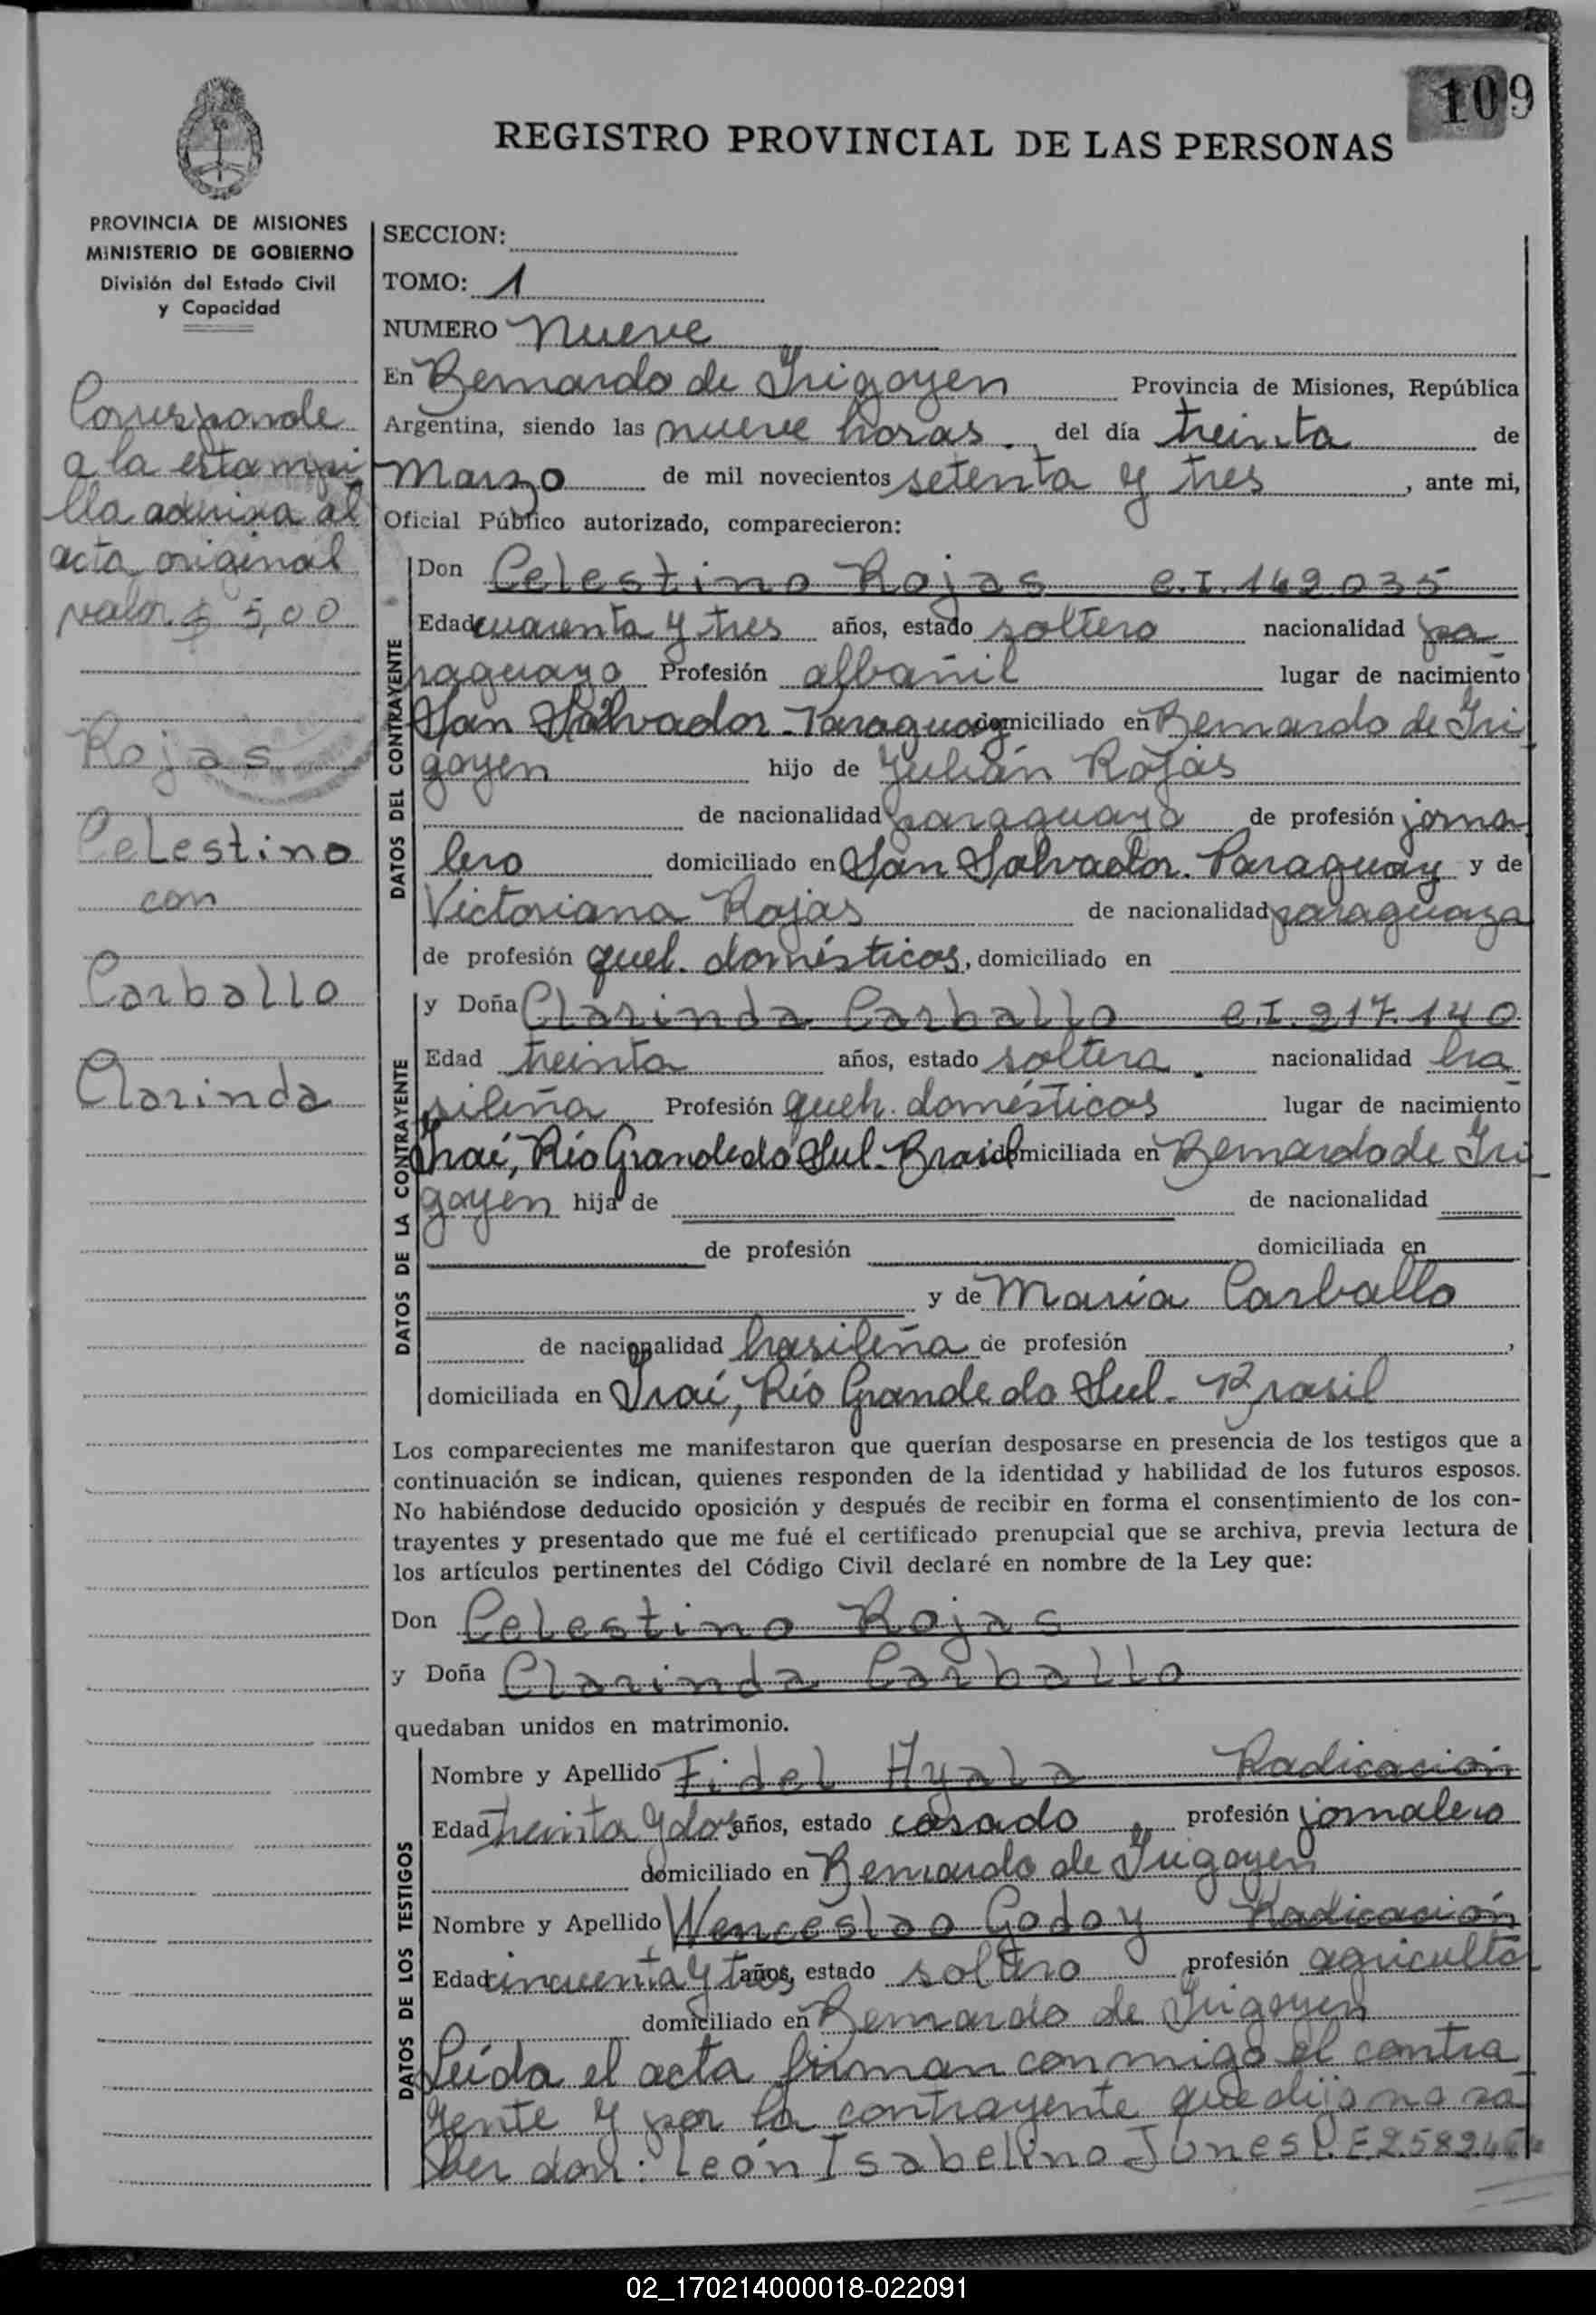 109
REGISTRO PROVINCIAL DE LAS PERSONAS
PROVINCIA DE MISIONES
MINISTERIO DE GOBIERNO
División del Estado Civil
y Capacidad
Corresponde
a la estampi
lla adherida al
acta original
valor $ 5,00
Rojas
Celestino
con
Carballo
Clarinda
SECCION:
TOMO: 1
NUMERO Nueve
En Bernardo de Irigoyen Provincia de Misiones, República
Argentina, siendo las nueve horas. del día treinta de
Marzo de mil novecientos setenta y tres, ante mi,
Oficial Público autorizado, comparecieron:
DATOS DEL CONTRAYENTE
Don Celestino Rojas C.I. 149.035
Edad cuarenta y tres años, estado soltero nacionalidad pa
raguaya Profesión albañil lugar de nacimiento
San Salvador-Paraguay domiciliado en Bernardo de Iri
goyen hijo de Julián Rojas
de nacionalidad paraguaya de profesión jorna
lero domiciliado en San Salvador. Paraguay y de
Victoriana Rojas de nacionalidad paraguaya
de profesión queh. domésticos, domiciliado en
DATOS DE LA CONTRAYENTE
y Doña Clarinda Carballo C.I. 217.140
Edad treinta años, estado soltera. nacionalidad bra
sileña Profesión queh. domésticos lugar de nacimiento
Iraí, Río Grande do Sul-Brasil domiciliada en Bernardo de Iri
goyen hija de de nacionalidad
de profesión domiciliada en
y de María Carballo
de nacionalidad brasileña de profesión ,
domiciliada en Iraí, Río Grande do Sul-Brasil
Los comparecientes me manifestaron que querían desposarse en presencia de los testigos que a
continuación se indican, quienes responden de la identidad y habilidad de los futuros esposos.
No habiéndose deducido oposición y después de recibir en forma el consentimiento de los con-
trayentes y presentado que me fué el certificado prenupcial que se archiva, previa lectura de
los artículos pertinentes del Código Civil declaré en nombre de la Ley que:
Don Celestino Rojas
y Doña Clarinda Carballo
quedaban unidos en matrimonio.
DATOS DE LOS TESTIGOS
Nombre y Apellido Fidel Ayala Radicación
Edad treinta y dos años, estado casado profesión jornalero
domiciliado en Bernardo de Irigoyen
Nombre y Apellido Wenceslao Godoy Radicación
Edad cincuenta y tres años, estado soltero profesión agriculto
domiciliado en Bernardo de Irigoyen
Leída el acta firman conmigo el contra
yente y por la contrayente que dijo no sa
ber don: León Isabelino Junes
02_170214000018-022091